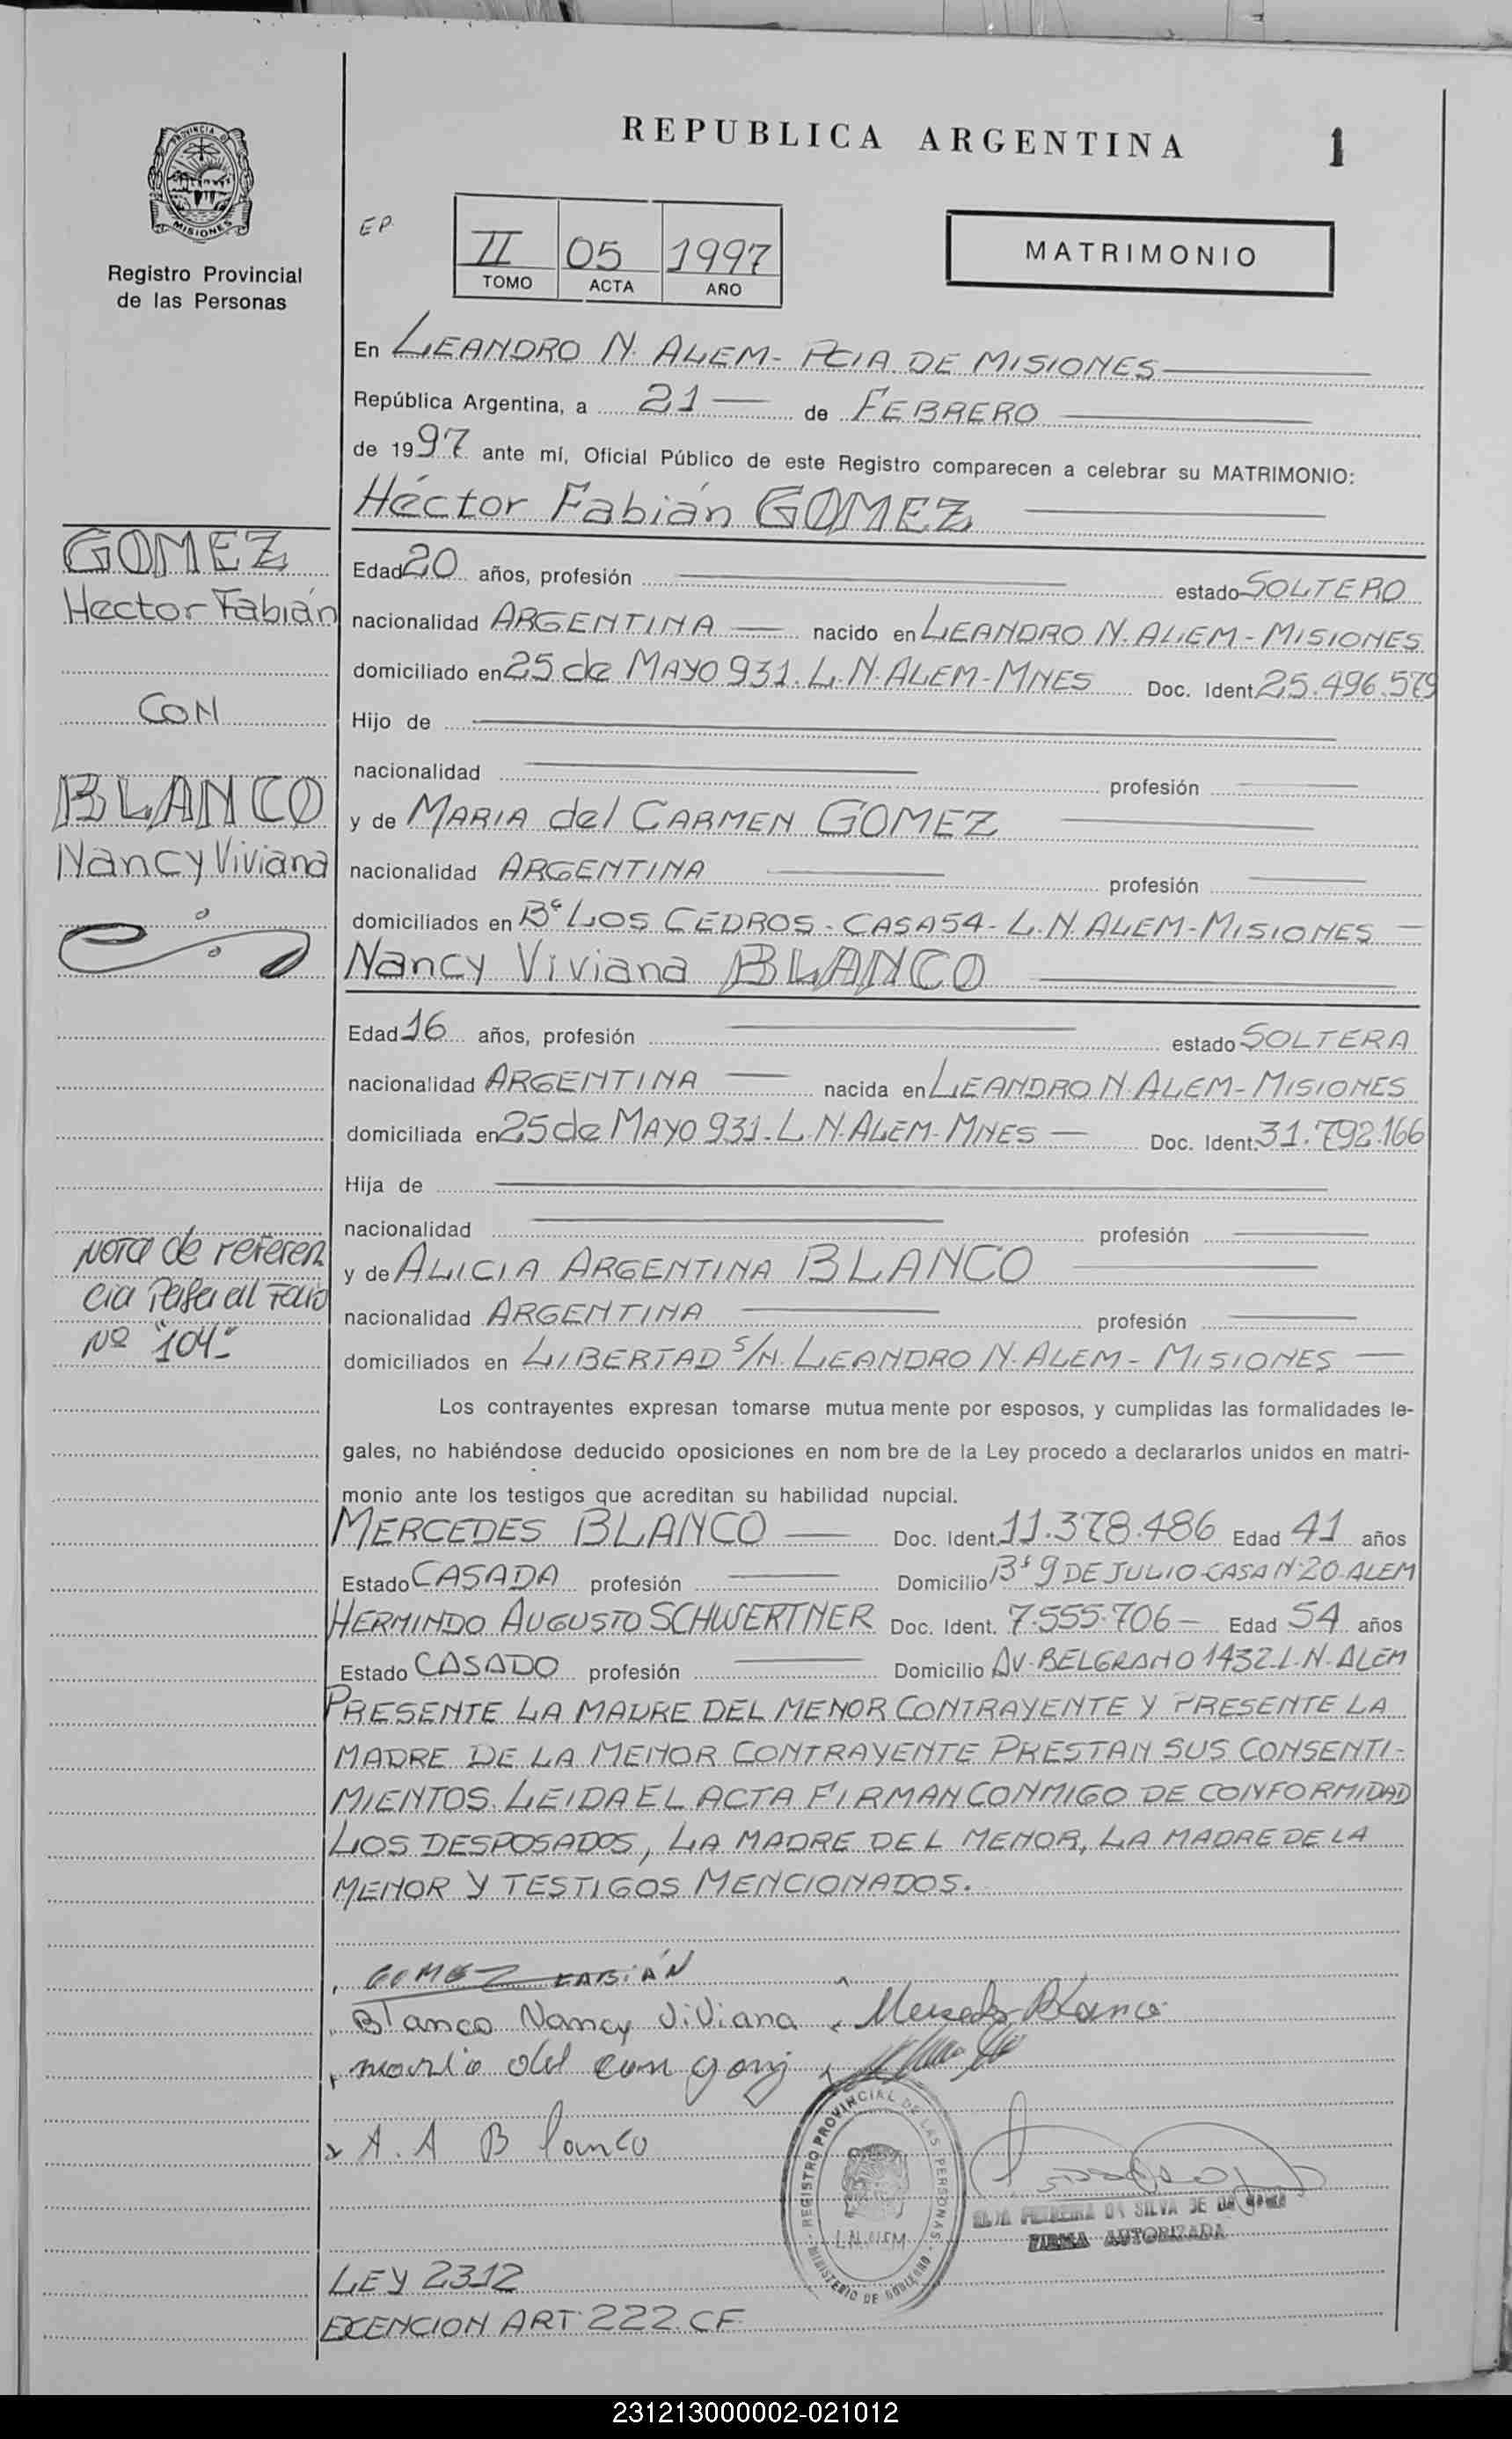 REPUBLICA ARGENTINA
1
PROVINCIA DE
MISIONES
Registro Provincial
de las Personas
EP.
II 05 1997
TOMO ACTA AÑO
MATRIMONIO
En LEANDRO N. ALEM- PCIA DE MISIONES
República Argentina, a 21 de FEBRERO
de 1997 ante mí, Oficial Público de este Registro comparecen a celebrar su MATRIMONIO:
Héctor Fabián GOMEZ
GOMEZ
Hector Fabián
CON
BLANCO
Nancy Viviana
Edad 20 años, profesión estado SOLTERO
nacionalidad ARGENTINA nacido en LEANDRO N. ALEM-MISIONES
domiciliado en 25 de MAYO 931. L.N. ALEM-MNES Doc. Ident. 25.496.579
Hijo de
nacionalidad profesión
y de MARIA del CARMEN GOMEZ
nacionalidad ARGENTINA profesión
domiciliados en Bº LOS CEDROS-CASA54-L.N. ALEM-MISIONES
Nancy Viviana BLANCO
Edad 16 años, profesión estado SOLTERA
nacionalidad ARGENTINA nacida en LEANDRO N. ALEM-MISIONES
domiciliada en 25 de MAYO 931-L.N. ALEM-MNES Doc. Ident. 31.792.166
Hija de
nacionalidad profesión
y de ALICIA ARGENTINA BLANCO
nacionalidad ARGENTINA profesión
domiciliados en LIBERTAD S/N. LEANDRO N. ALEM-MISIONES
Nota de referen
cia Pasa al Folio
Nº "104"-
Los contrayentes expresan tomarse mutua mente por esposos, y cumplidas las formalidades le-
gales, no habiéndose deducido oposiciones en nom bre de la Ley procedo a declararlos unidos en matri-
monio ante los testigos que acreditan su habilidad nupcial.
MERCEDES BLANCO Doc. Ident. 11.378.486 Edad 41 años
Estado CASADA profesión Domicilio Bº 9 DE JULIO-CASA Nº20-ALEM
HERMINDO AUGUSTO SCHWERTNER Doc. Ident. 7.555.706 Edad 54 años
Estado CASADO profesión Domicilio AV. BELGRANO 1432-L.N. ALEM
PRESENTE LA MADRE DEL MENOR CONTRAYENTE Y PRESENTE LA
MADRE DE LA MENOR CONTRAYENTE PRESTAN SUS CONSENTI-
MIENTOS. LEIDA EL ACTA FIRMAN CONMIGO DE CONFORMIDAD
LOS DESPOSADOS, LA MADRE DEL MENOR, LA MADRE DE LA
MENOR Y TESTIGOS MENCIONADOS.
GOMEZ FABIÁN
Blanco Nancy Viviana Mercedes Blanco
maria del
A. A Blanco
REGISTRO PROVINCIAL DE LAS PERSONAS
L.N. ALEM
MINISTERIO DE GOBIERNO
DA SILVA DE
FIRMA AUTORIZADA
LEY 2312
EXENCION ART. 222. CF.
231213000002-021012